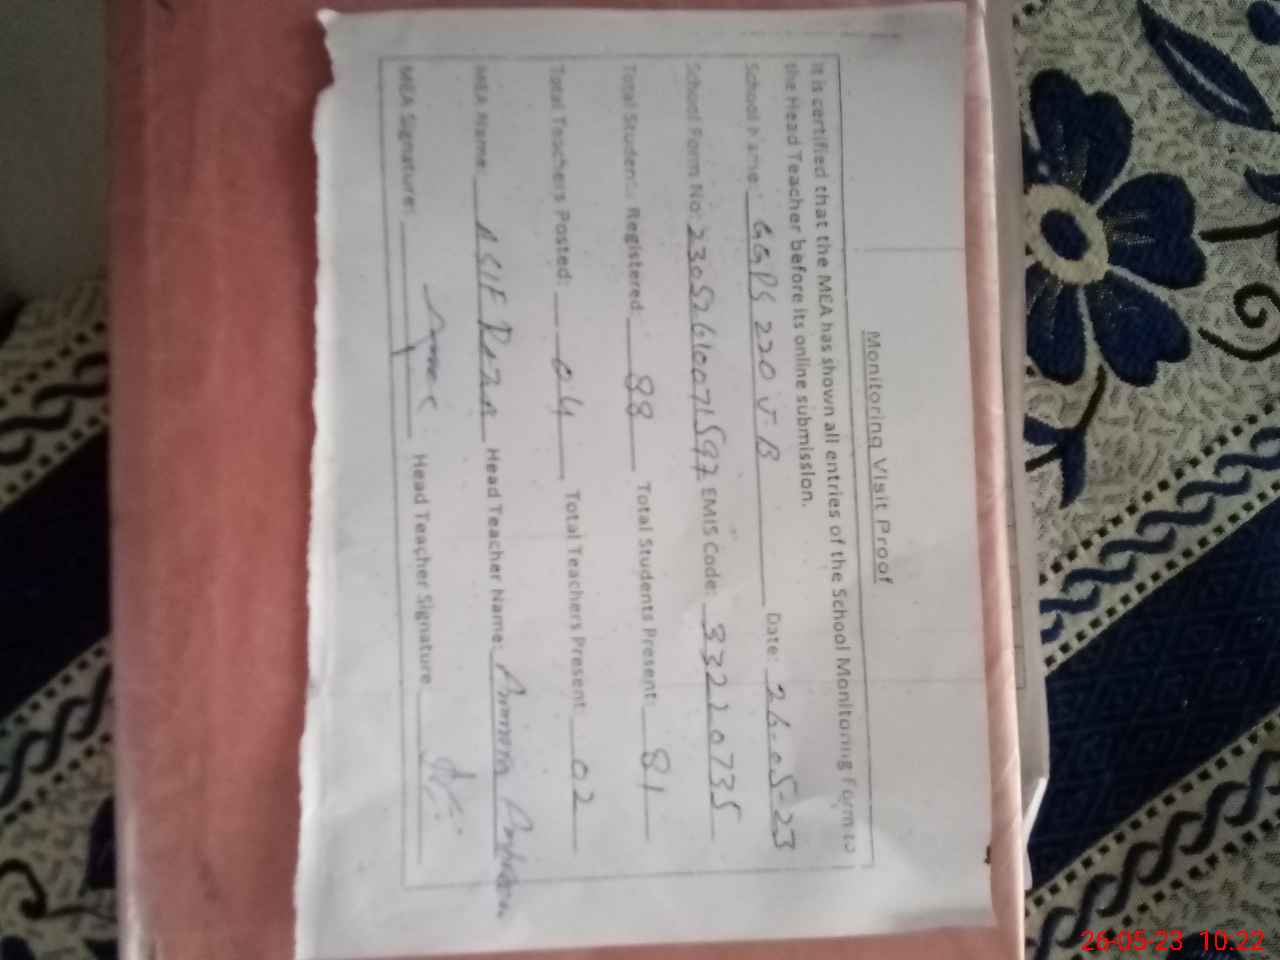 Monitoring Visit Proof
It is certified that the MEA has shown all entries of the School Monitoring Form to
the Head Teacher before its online submission.
School Name: GGPS 220 J-B Date: 26-05-23
School Form No: 23052610071597 EMIS Code: 33220735
Total Students Registered: 88 Total Students Present: 81
Total Teachers Posted: 04 Total Teachers Present: 02
MEA Name: ASIF Raza Head Teacher Name: 
MEA Signature: Head Teacher Signature
26-05-23 10:22